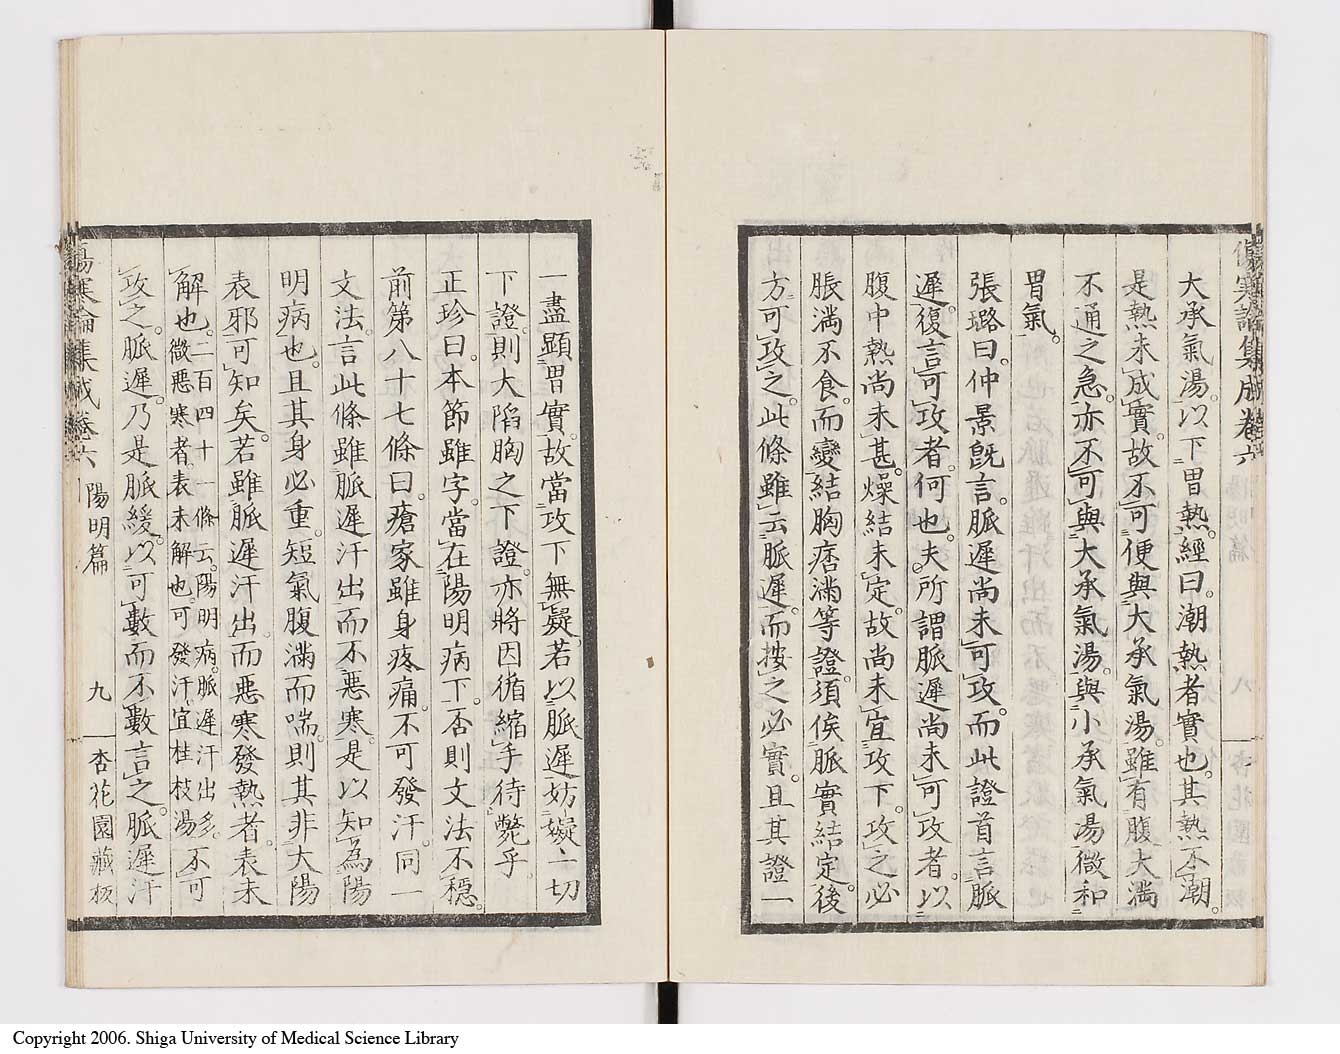 大承氣湯。以下胃熱。經曰。潮熱者實也。其熱不潮。
是熱未成實。故不可便與大承氣湯。雖有腹大満
不通之急。亦不可與大承氣湯。與小承氣湯微和
胃氣。
張璐曰。仲景既言。脈遲尚未可攻。而此證首言脈
遲。復言可攻者。何也。夫所謂脈遲尚未可攻者。以
腹中熱尚未甚。燥結未定。故尚未宜攻下。攻之必
脹満不食。而變結胸痞満等證。須俟脈實結定。後
方可攻之。此條雖云脈遲。而按之必實。且其證一
傷寒論集成卷六
一盡顕胃實。故當攻下無疑。若以脈遲妨礙一切
下證。則大陷胸之下證。亦將因循縮手待斃乎。
正珍曰。本節雖字。當在陽明病下。否則文法不穩。
前第八十七條曰。瘡家雖身疼痛。不可發汗。同一
文法。言此條雖脈遲汗出而不惡寒。是以知為陽
明病也。且其身必重。短氣腹満而喘。則其非大陽
表邪可知矣。若雖脈遲汗出。而惡寒發熱者。表未
解也。二百四十一條云。陽明病。脈遲汗出多。微惡寒者。表未解也。可發汗。宜桂枝湯。不可
攻之。脈遲。乃是脈緩。以可數而不數言之。脈遲汗
傷寒論集成卷六 陽明篇 九 杏花園藏板
Copyright 2006. Shiga University of Medical Science Library